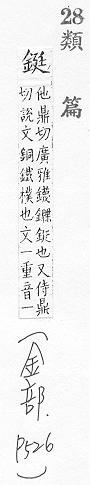 28
類
篇
鋌
他鼎切廣雅鐵鏷鋌也又侍鼎
切說文銅鐵樸也文一重音一
(金部.
P526)